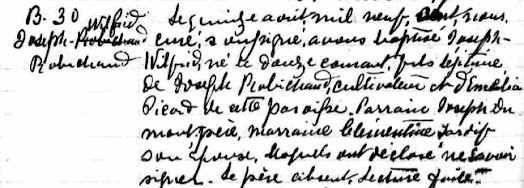 B. 30
Wilfrid
Joseph-Robichaud
Robichaud
Le quinze août mil neuf cent, nous,
curé, soussigné, avons baptisé Joseph-
Wilfrid, né le douze courant, fils légitime
de Joseph Robichaud, cultivateur et d'Emélia
Picard de cette paroisse. Parrain Joseph Du-
mont père, marraine Clémentine Tardif
son épouse, lesquels ont déclaré ne savoir
signer. Le père absent. Lecture faite.